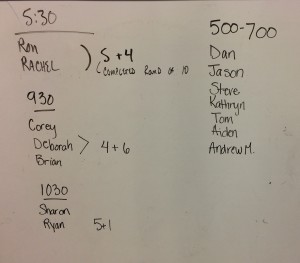 5:30
Ron
RACHEL
5+4
(COMPLETED ROUND OF 10
930
Corey
Deborah
Brian
4+6
1030
Sharon
Ryan
5+1
500-700
Dan
Jason
Steve
Kathryn
Tom
Aiden
Andrew M.